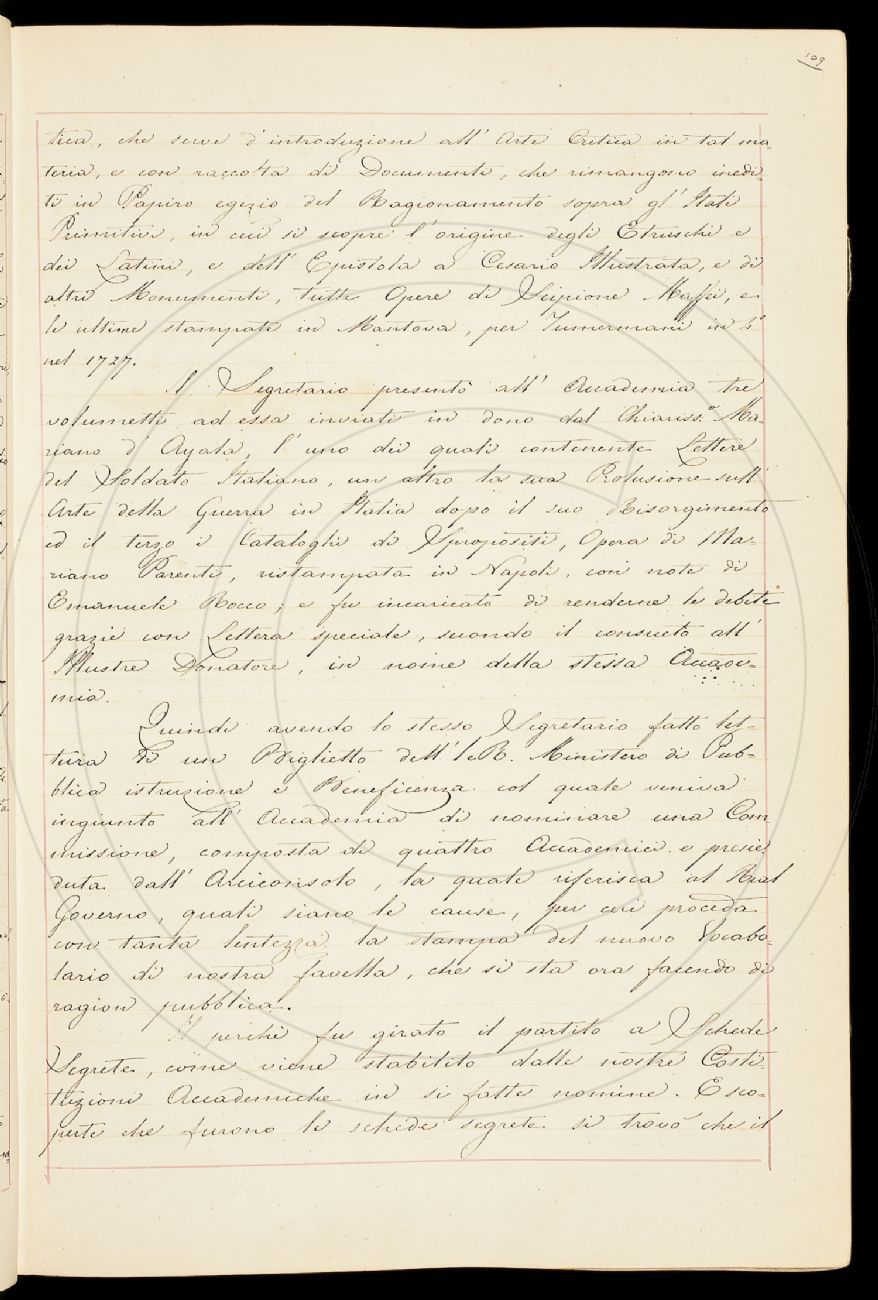 109
tica, che serve d'introduzione all'Arte Critica in tal ma-
teria, e con raccolta di Documenti, che rimangono inedi-
ti in Papiro egizio del Ragionamento sopra gl'Itali
Primitivi, in cui si scopre l'origine degli Etruschi e
dei Latini, e dell'Epistola a Cesario Illustrata, e di
altri Monumenti, tutte Opere di Scipione Maffei, e
le ultime stampate in Mantova, per Tumermani in 4°
nel 1727.
Il Segretario presentò all'Accademia tre
volumetti ad essa inviati in dono dal Chiariss.° Ma-
riano d'Ayala, l'uno dei quali contenente Lettere
del Soldato Italiano, un altro la sua Prolusione sull'
Arte della Guerra in Italia dopo il suo Risorgimento
ed il terzo i Cataloghi di Spropositi, Opera di Ma-
riano Parenti, ristampata in Napoli, con note di
Emanuele Rocco; e fu incaricato di renderne le debite
grazie con Lettera speciale, secondo il consueto all'
Illustre Donatore, in nome della stessa Accade-
mia.
Quindi avendo lo stesso Segretario fatto let-
tura di un Biglietto dell'I. e R. Ministero di Pub-
blica istruzione e Beneficenza col quale veniva
ingiunto all'Accademia di nominare una Com
missione, composta di quattro Accademici e presie
duta dall'Arciconsolo, la quale riferisca al Real
Governo, quali siano le cause, per cui proceda
con tanta lentezza la stampa del nuovo Vocabo-
lario di nostra favella, che si sta ora facendo di
ragion pubblica.
Il perchè fu girato il partito a Schede
Segrete, come viene stabilito dalle nostre Costi-
tuzioni Accademiche in sì fatte nomine. E sco-
perte che furono le schede segrete si trovò che il